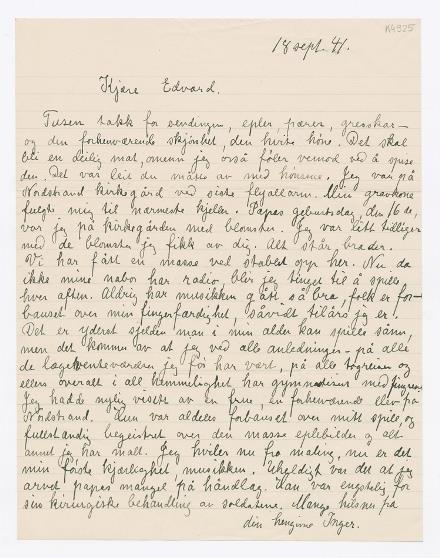 K4925
18 sept. 41.
Kjære Edvard.
Tusen takk for sendingen, epler, pærer, gresskar
og den forhenværende skjønhet, den hvite höne. Det skal
bli en deilig mat, omenn jeg också föler vemod ved å spise
den. Det var leit du måtte av med hönsene. Jeg var på
Nordstrand kirkegård ved siste flyallarm. Min gravkone
fulgte mig til nærmeste kjeller. Papas geburtsdag, den 16 de,
var jeg på kirkegården med blomster. Jeg var litt tidligere
med de blomster jeg fikk av dig. Alt står bra der.
Vi har fått en masse ved stablet opp her. Nu da
ikke mine naboer har radio, blir jeg tinget til å spille
hver aften. Aldrig har musikken gått så bra, folk er for-
bauset over min fingerfærdighet, såvidt tilårs jeg er.
Det er yderst sjelden man i min alder kan spille sånn,
men det kommer av at jeg ved alle anledninger - på alle
de lægeventeværelser jeg har vært, på alle togreiser og
ellers overalt i all hemmelighet har gymnasticert med fingrene.
Jeg hadde nylig visitt av en frue, en forhenværende elev fra
Nordstrand. Hun var aldeles forbauset over mitt spill, og
fullstendig begeistret over den masse eplebilder og alt
annet jeg har malt. Jeg hviler nu fra maling, nu er det
min förste kjærlighet musikken. Uheldigt var det at jeg
arvet papas mangel på håndlag. Han var engstelig for
sin kirurgiske behandling av soldatene. Mange hilsner fra
din hengivne Inger.